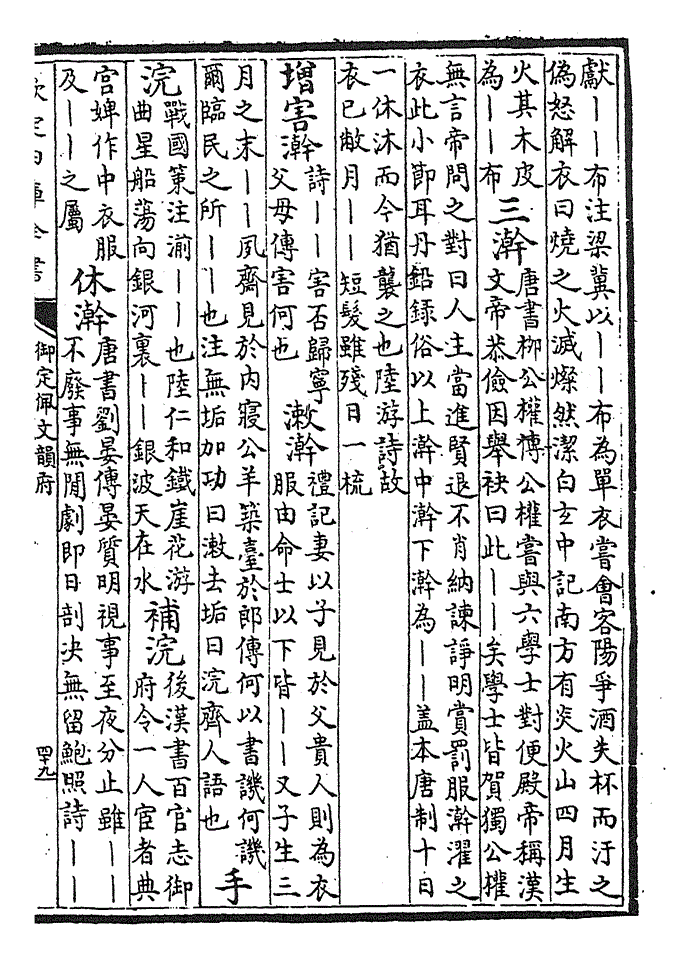 獻——布注梁冀以——布為單衣嘗會客陽爭酒失杯而汙之
偽怒解衣曰燒之火滅燦然潔白玄中記南方有炎火山四月生
火其木皮
為——布
三澣
唐書柳公權傳公權嘗與六學士對便殿帝稱漢
文帝恭儉因舉袂曰此——矣學士皆賀獨公權
無言帝問之對曰人主當進賢退不肖納諫諍明賞罰服澣濯之
衣此小節耳丹鉛録俗以上澣中澣下澣為——盖本唐制十日
一休沐而今猶襲之也陸游詩故
衣已敝月——短髮雖殘日一梳
增害澣
詩——害否歸寧
父母傳害何也
漱澣
禮記妻以子見於父貴人則為衣
服由命士以下皆——又子生三
月之末——夙齊見於内寢公羊築臺於郎傳何以書譏何譏
爾臨民之所——也注無垢加功曰漱去垢曰浣齊人語也
手
浣
戰國策注湔——也陸仁和鐵崖花游
曲星船蕩向銀河裏——銀波天在水
補浣
後漢書百官志御
府令一人宦者典
宫婢作中衣服
及——之屬
休澣
唐書劉晏傳晏質明視事至夜分止雖——
不廢事無閒劇即日剖决無留鮑照詩——
欽定四庫全書
御定佩文韻府
四十九